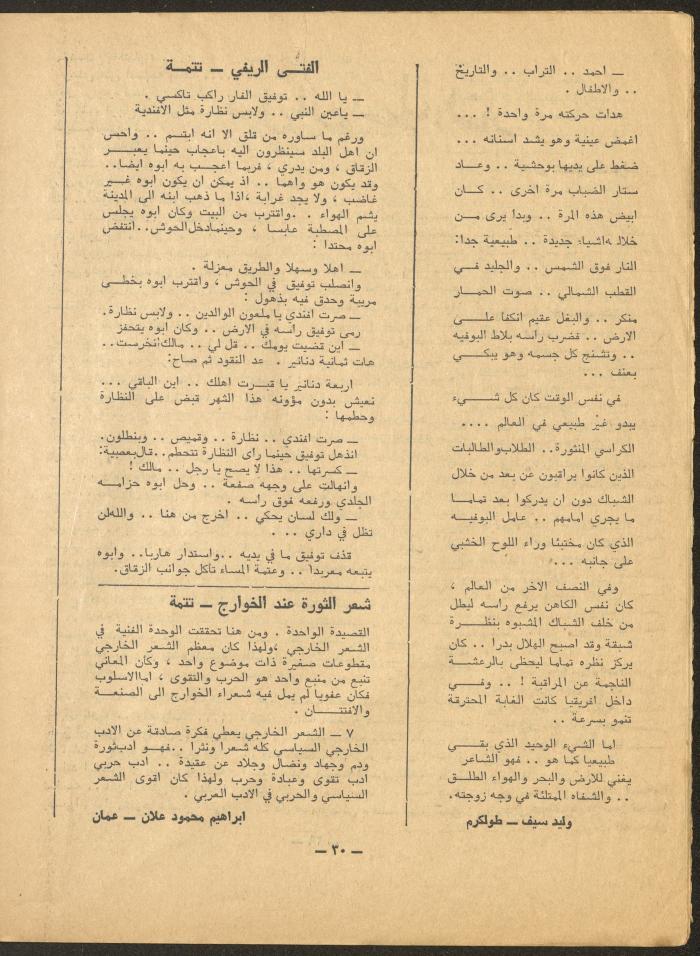 ــ احمد .. التراب .. والتاريخ
.. والاطفال .
هدات حركته مرة واحدة ! ...
اغمض عينية وهو يشد اسنانه ...
ضغط على يديها بوحشية .. وعاد
ستار الضباب مرة اخرى .. كــان
ابيض هذه المرة .. وبدا يرى مــن
خلاله اشياء جديدة .. طبيعية جدا:
النار فوق الشمس .. والجليد فــي
القطب الشمالي .. صوت الحمــار
منكر .. والبغل عقيم انكفا علــى
الارض .. فضرب رأسه بلاط البوفيه
.. وتشنج كل جسمه وهو يبكــي
بعنف ...
في نفس الوقت كان كل شــيء
يبدو غير طبيعي في العالم ....
الكراسي المنثورة.. الطلاب والطالبات
الذين كانوا يراقبون عن بعد من خلال
الشباك دون ان يدركوا بعد تمامــا
ما يجري امامهم .. عامل البوفيــه
الذي كان مختبئا وراء اللوح الخشبي
على جانبه ...
وفي النصف الاخر من العالم ،
كان نفس الكاهن يرفع راسه ليطل
من خلف الشباك المشبوه بنظــرة
شبقة وقد اصبح الهلال بدرا .. كان
يركز نظره تماما ليحظى بالرعشــة
الناجمة عن المراقبة ! .. وفــي
داخل افريقيا كانت الغابة المحترقة
تنمو بسرعة ..
اما الشيء الوحيد الذي بقــي
طبيعيا كما هو .. فهو الشاعر
يغني للارض والبحر والهواء الطلــق
.. والشفاه الممتلئة في وجه زوجته.
وليد سيف ــ طولكرم
الفتــى الريفي ــ تتمــة
ــ يا الله .. توفيق الفار راكب تاكسي .
ــ ياعين النبي .. ولابس نظارة مثل الافندية
ورغم ما ساوره من قلق الا انه ابتسم .. واحس
ان اهل البلد سينظرون اليه باعجاب حينما يعبــر
الزقاق ، ومن يدري ، فربما اعجــب به ابوه ايضا..
وقد يكون هو واهما .. اذ يمكن ان يكون ابوه غــير
غاضب ، ولا يجد غرابة ،اذا ما ذهب ابنه الى المدينة
يشم الهواء .. .واقترب من البيت وكان ابوه يجلس
على المصطبة عابسا ، وحينما دخل الحوش..انتفض
ابوه محتدا :
ــ اهلا وسهلا والطريق معزلة .
وانصلب توفيق في الحوش ، واقترب ابوه بخطــى
مريبة وحدق فيه بذهول :
ــ صرت افندي يا ملعون الوالدين .. ولابس نظارة.
رمى توفيق راسه في الارض .. وكان ابوه يتحفز
ــ اين قضيت يومك .. قل لي .. مالك انخرست..
هات ثمانية دنانير . عد النقود ثم صاح:
اربعة دنانير يا قبــرت اهلك .. اين الباقي ...
نعيش بدون مؤونه هذا الشهر قبض على النظارة
وحطمها :
ــ صرت افندي .. نظارة .. وقميص .. وبنطلون.
انذهل توفيق حينما راى النظارة تتحطم..قال بعصبية:
ــ كسرتها .. هذا لا يصح يا رجل .. مالك !
وانهالت على وجهه صفعة .. وحل ابوه حزامــه
الجلدي ورفعه فوق راسه .
ــ ولك لسان يحكي .. اخرج من هنا .. والله لن
تظل في داري .. .
قذف توفيق ما في يديه ..واستدار هاربا.. وابوه
يتبعه معربدا .. وعتمة المساء تأكل جوانب الزقاق.
شعر الثورة عند الخوارج ــ تتمة
القصيدة الواحدة . ومن هنا تحققت الوحدة الفنية في
الشــعر الخارجي ،ولهذا كان معظم الشعر الخارجي
مقطوعات صغيرة ذات موضوع واحد ، وكان المعاني
تنبع من منبع واحد هو الحرب والتقوى ، اما الاسلوب
فكان عفويا لم يمل فيه شعراء الخوارج الى الصنعــة
والافتتــــان .
٧ ــ الشعر الخارجي يعطي فكرة صادقة عن الادب
الخارجي السياسي كله شعرا ونثرا ..فهــو ادب ثورة
ودم وجهاد ونضال وجلاد عن عقيدة .. ادب حربي
ادب تقوى وعبادة وحرب ولهذا كان اقوى الشعر
السياسي والحربي في الادب العربي .
ابراهيم محمود علان ــ عمان
ــ ٣٠ ــ